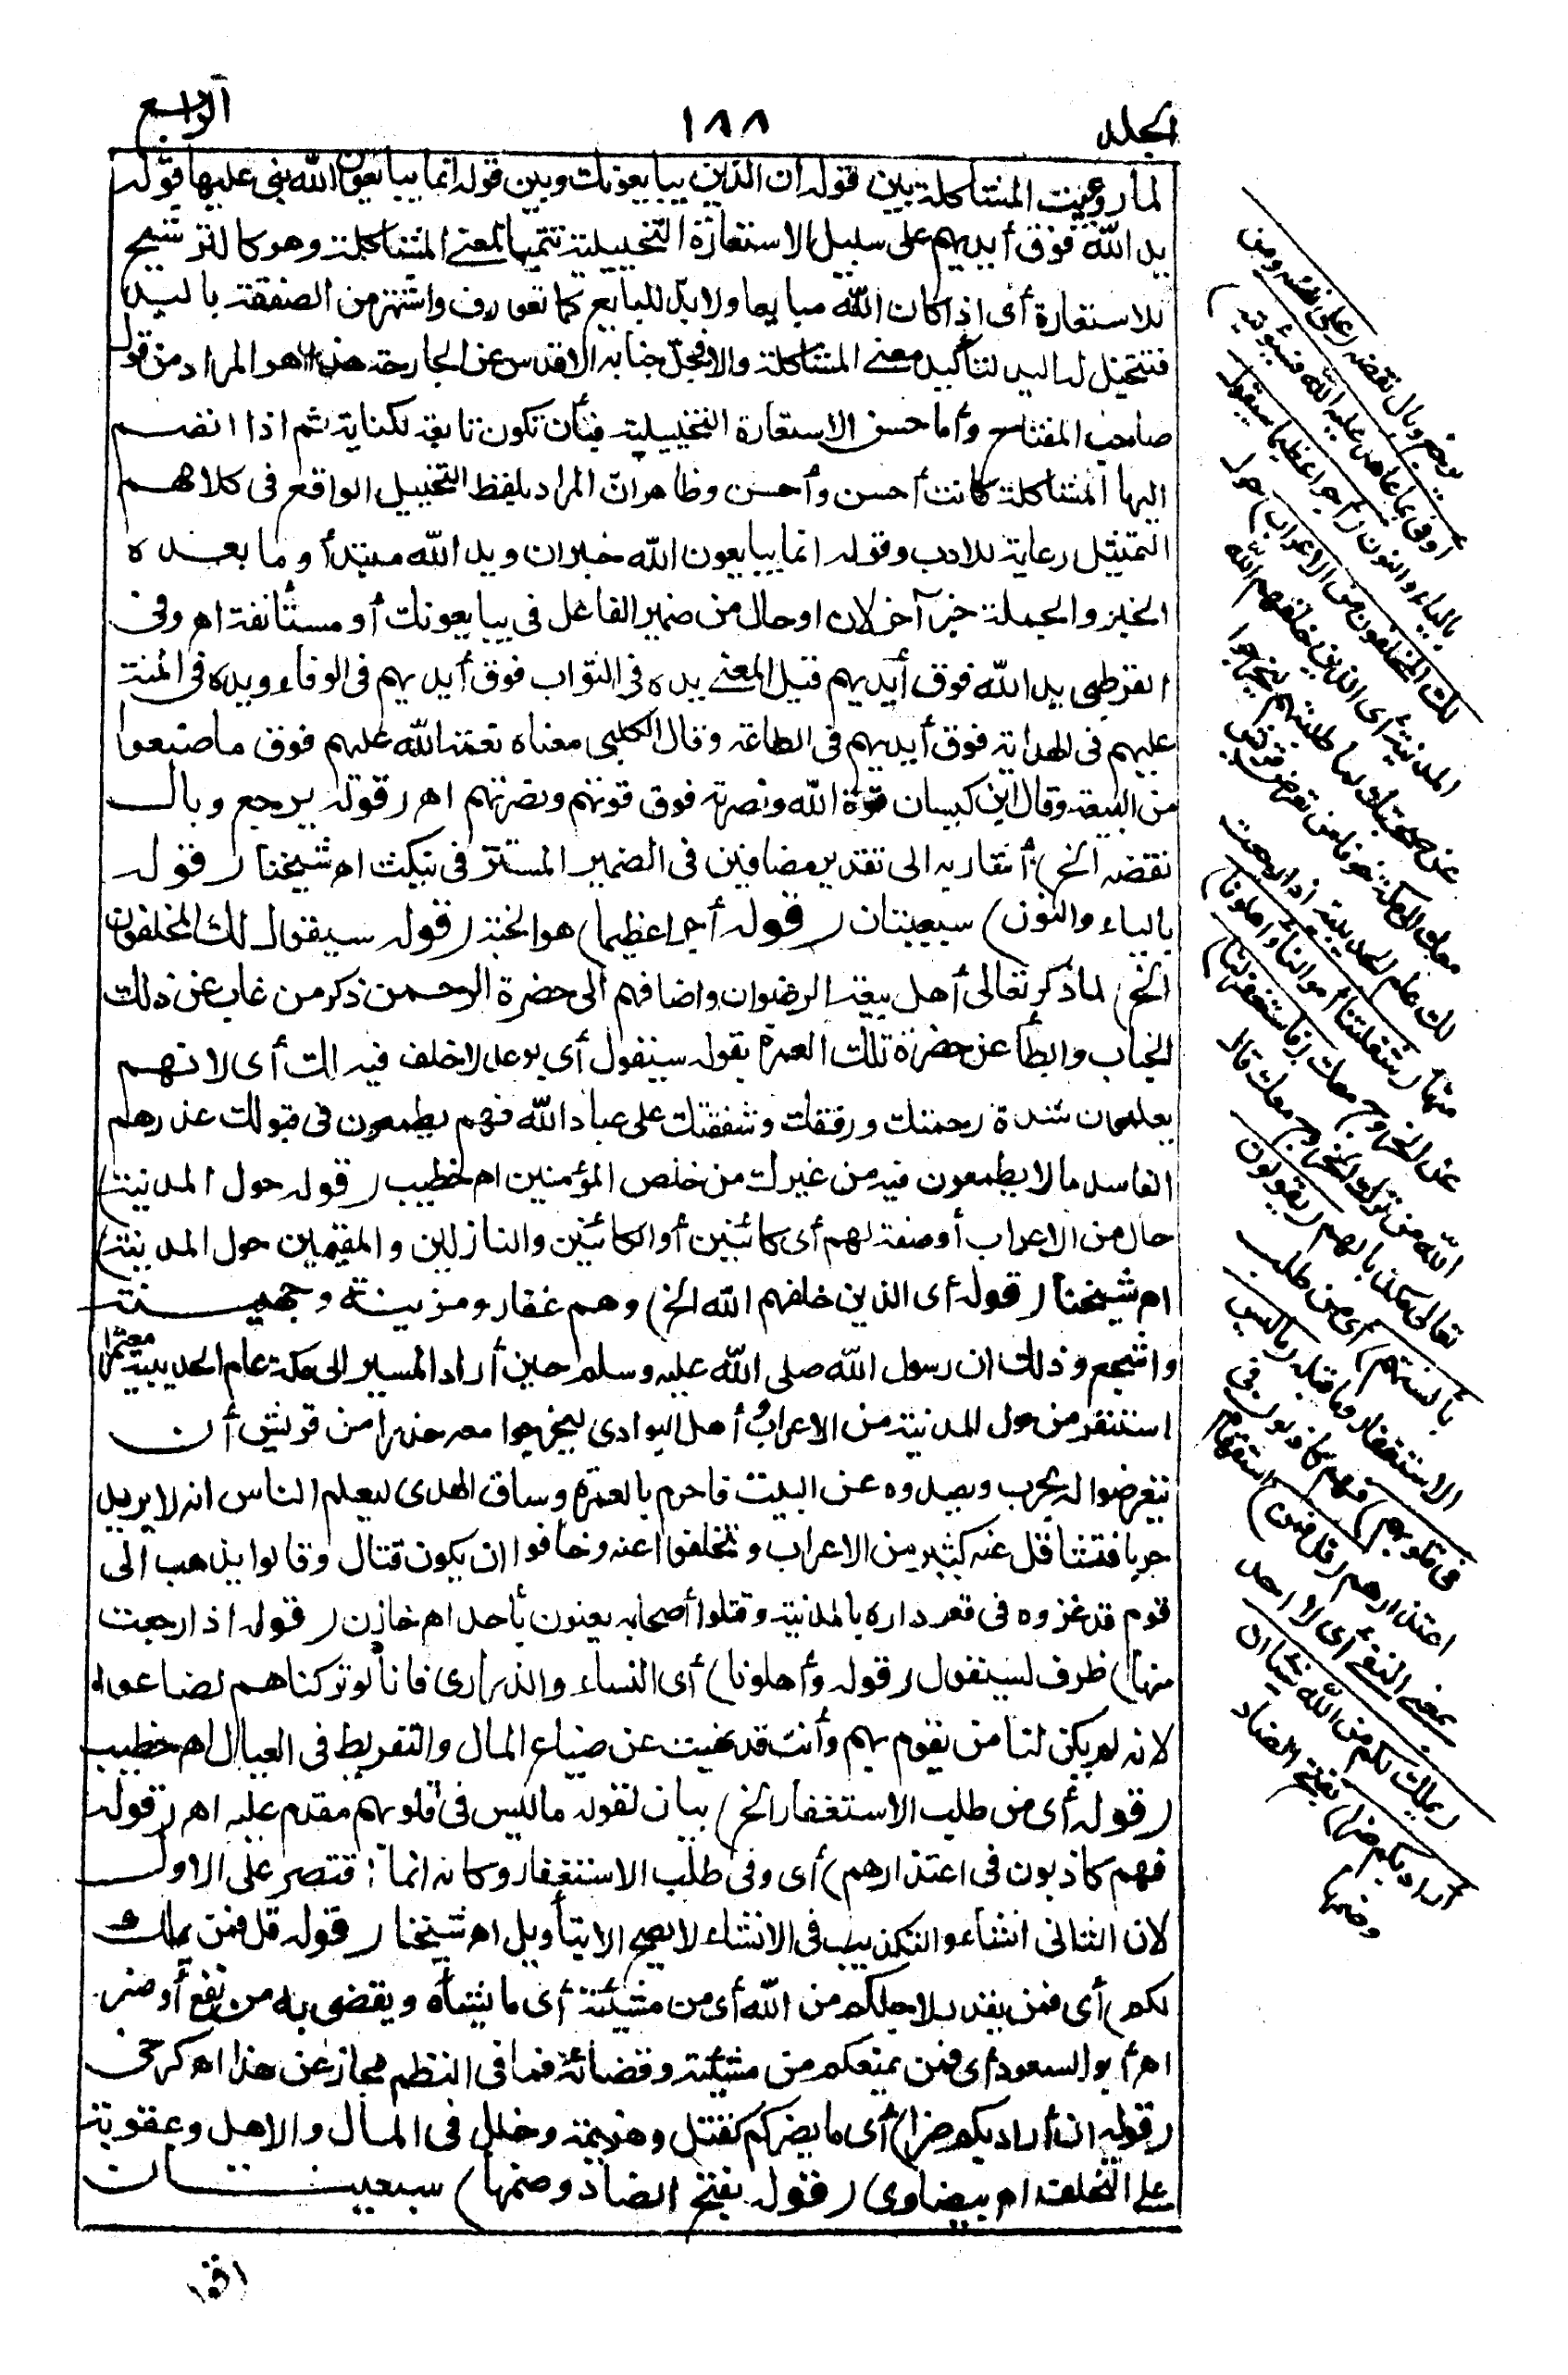 الجلد
١٨٨
الرابع
لما روعيت المشاكلة بين قوله ان الذين يبايعونك وبين قوله انما يبايعون الله بنى عليها قوله
يد الله فوق أيديهم على سبيل الاستعارة التخييلية تتميما لمعنى المشاكلة وهو كالترشيح
للاستعارة أى اذا كان الله مبايعا ولا بد للمبايع كما تعورف واشتهر من الصفقة باليد
فتتخيل له اليد لتأكيد معنى المشاكلة والا فجل جنابه الاقدس عن الجارحة هذا هو المراد من قول
صاحب المفتاح وأما حسن الاستعارة التخييلية فبأن تكون تابعة لكناية ثم اذا انضم
اليها المشاكلة كانت أحسن وأحسن وظاهر ان المراد بلفظ التخييل الواقع فى كلامهم
التمثيل رعاية للادب وقوله انما يبايعون الله خبر ان ويد الله مبتدأ وما بعده
الخبر والجملة خبر آخر لان او حال من ضمير الفاعل فى يبايعونك أو مستأنفة اهـ وفى
القرطبى يد الله فوق أيديهم قيل المعنى يده فى الثواب فوق أيديهم فى الوفاء ويده فى المنة
عليهم فى الهداية فوق أيديهم فى الطاعة وقال الكلبى معناه نعمة الله عليهم فوق ما صنعوا
من البيعة وقال ابن كيسان قوة الله ونصرته فوق قوتهم ونصرتهم اهـ (قوله يرجع وبال
نقضه الخ) أشار به الى تقدير مضافين فى الضمير المستتر فى ينكث اهـ شيخنا (قوله
بالياء والنون) سبعيتان (قوله أجرا عظيما) هو الجنة (قوله سيقول لك المخلفون
الخ) لما ذكر تعالى أهل بيعة الرضوان واضافهم الى حضرة الرحمن ذكر من غاب عن ذلك
الجناب وابطأ عن حضرة تلك العمرة بقوله سيقول أى بوعد لا خلف فيه لك أى لانهم
يعلمون شدة رحمتك ورفقك وشفقتك على عباد الله فهم يطمعون فى قبولك عذرهم
الفاسد ما لا يطمعون فيه من غيرك من خلص المؤمنين اهـ خطيب (قوله حول المدينة)
حال من الاعراب أو صفة لهم أى كائنين أو الكائنين والنازلين والمقيمين حول المدينة)
اهـ شيخنا (قوله أى الذين خلفهم الله الخ) وهم غفار ومزينة وجهينة
واشجع وذلك ان رسول الله صلى الله عليه وسلم حين أراد المسير الى مكة عام الحديبية معتمرا
استنفر من حول المدينة من الاعراب أهل البوادى ليخرجوا معه حذرا من قريش أن
يتعرضوا له بحرب ويصدوه عن البيت فاحرم بالعمرة وساق الهدى ليعلم الناس انه لا يريد
حربا فتثاقل عنه كثير من الاعراب وتخلفوا عنه وخافوا ان يكون قتال وقالوا يذهب الى
قوم قد غزوه فى قعر داره بالمدينة وقتلوا أصحابه يعنون بأحد اهـ خازن (قوله اذا رجعت
منها) ظرف لسيقول (قوله وأهلونا) أى النساء والذرارى فانا لو تركناهم لضاعوا
لانه لم يكن لنا من يقوم بهم وأنت قد نهيت عن ضياع المال والتفريط فى العيال اهـ خطيب
(قوله أى من طلب الاستغفار الخ) بيان لقوله ما ليس فى قلوبهم مقدم عليه اهـ (قوله
فهم كاذبون فى اعتذارهم) أى وفى طلب الاستغفار وكانه انما اقتصر على الاول
لان الثانى انشاء والتكذيب فى الانشاء لا يصح الا بتأويل اهـ شيخنا (قوله قل فمن يملك
لكم) أى فمن يقدر لاجلكم من الله أى من مشيئته أى ما يشاء ويقضى به من نفع أو ضر
اهـ أبو السعود أى فمن يمنعكم من مشيئته وقضائه فما فى النظم مجاز عن هذا اهـ كرخى
(قوله ان أراد بكم ضرا) أى ما يضركم كقتل وهزيمة وخلل فى المال والاهل وعقوبة
على التخلف اهـ بيضاوى (قوله بفتح الضاد وضمها) سبعيتان
يرجع وبال نقضه (على نفسه ومن
أوفى بما عاهد عليه الله فسيؤتيه)
بالياء والنون (أجرا عظيما سيقول
لك المخلفون من الاعراب) حول
المدينة أى الذين خلفهم الله
عن صحبتك لما طلبتهم ليخرجوا
معك الى مكة خوفا من تعرض قريش
لك عام الحديبية اذا رجعت
منها (شغلتنا أموالنا وأهلونا)
عن الخروج معك (فاستغفر لنا)
الله من ترك الخروج معك قال
تعالى مكذبا لهم (يقولون
بألسنتهم) أى من طلب
الاستغفار وما قبله (ما ليس
فى قلوبهم) فهم كاذبون فى
اعتذارهم (قل فمن) استفهام
بمعنى النفى أى لا احد
(يملك لكم من الله شيئا ان
أراد بكم ضرا) بفتح الضاد
وضمها